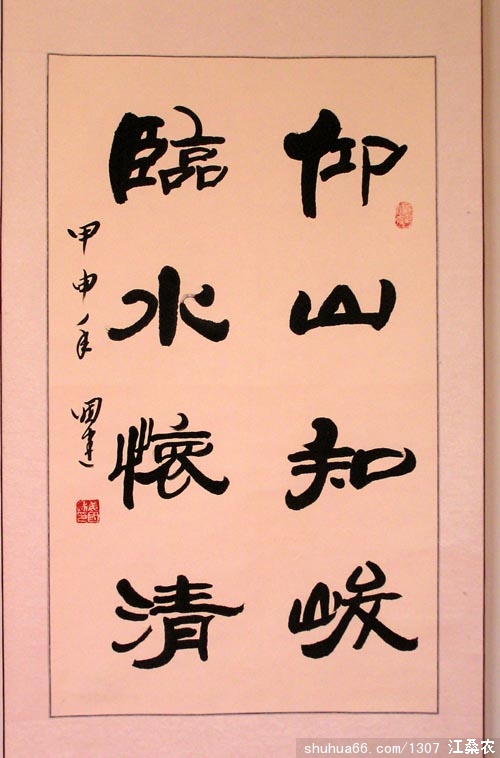 仰山知峻
臨水懷清
甲申年 國建
shuhua66.com/1307 江桑农